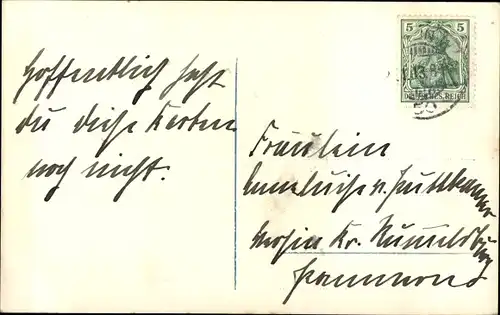 Hoffentlich hast
du diese Karten
noch nicht.
5 5
DEUTSCHES REICH
Fräulein
Anneluise v. Puttkamer
Kr. Rummelsburg
Pommern